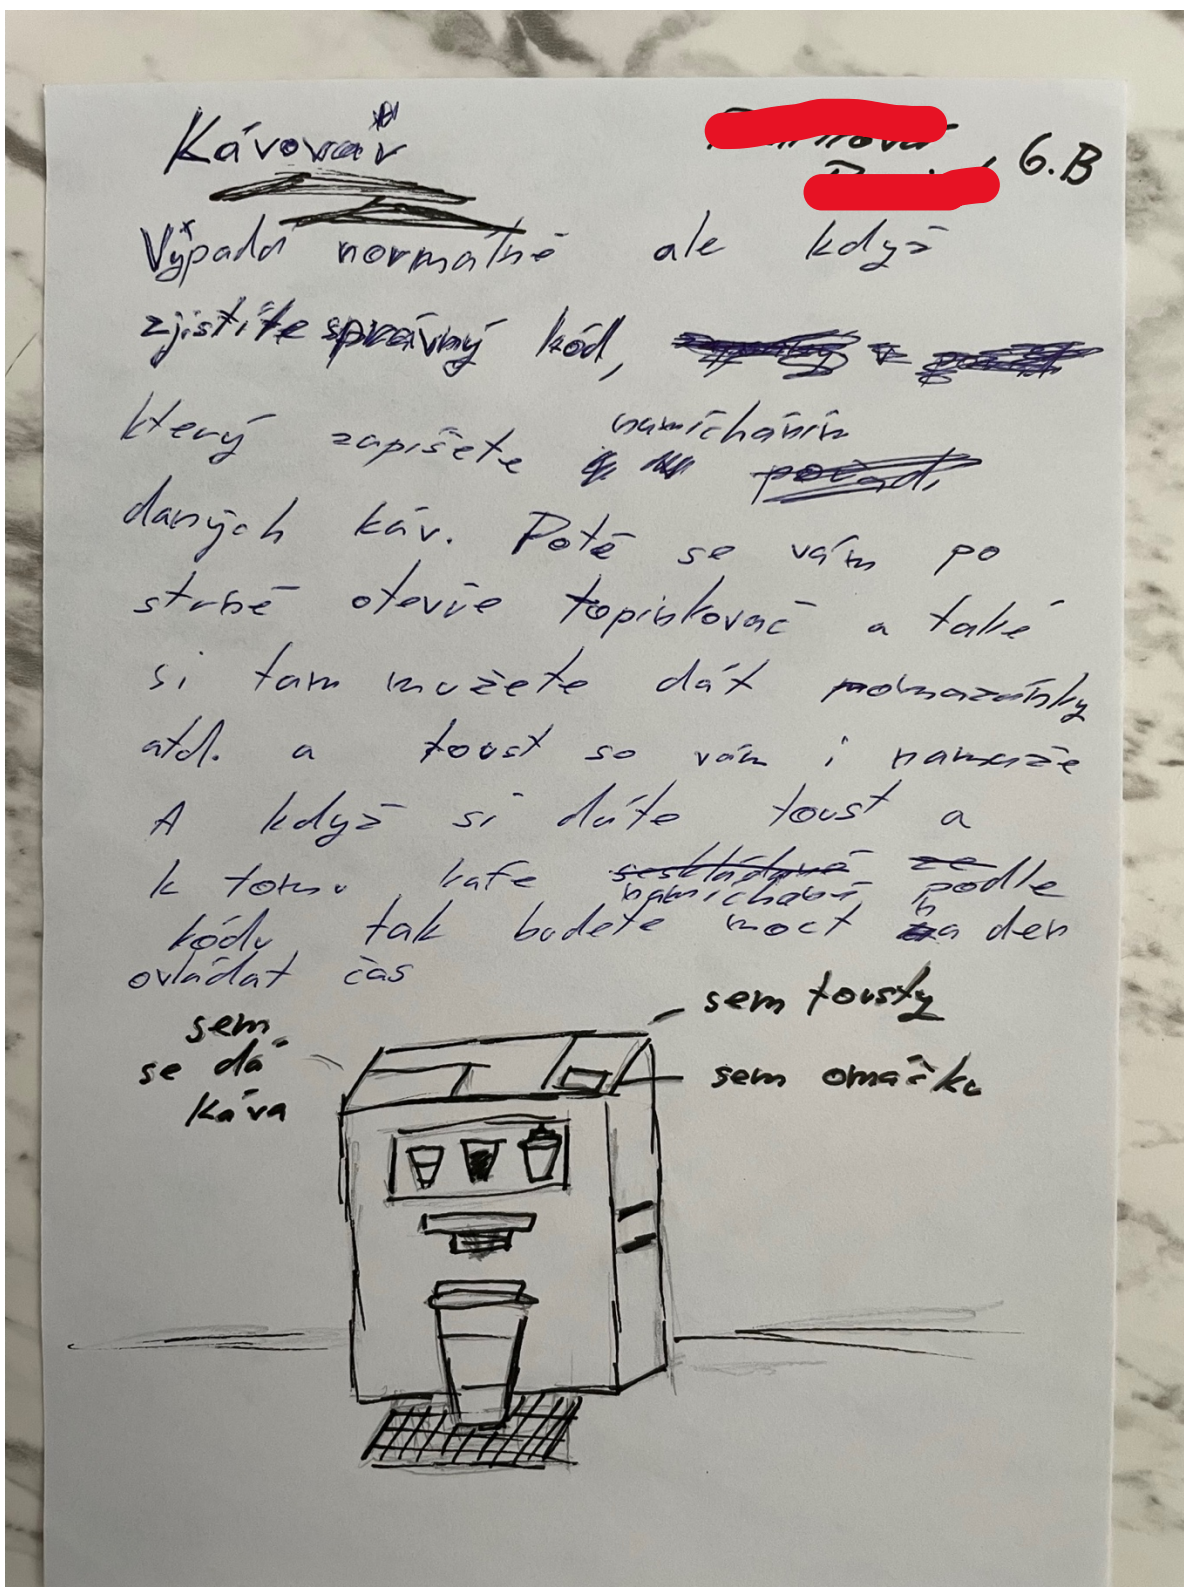 Kávovař
, 6.B
Vypadá normálně ale když
zjistíte správný kód,
který zapíšete namícháním
daných káv. Poté se vám po
straně otevře topinkovač a také
si tam mužete dát pomazánky
atd. a toust se vám i namaže
A když si dáte toust a
k tomu kafe namíchané podle
kódu, tak budete moct na den
ovládat čas
sem tousty
sem
se dá
káva
sem omáčku